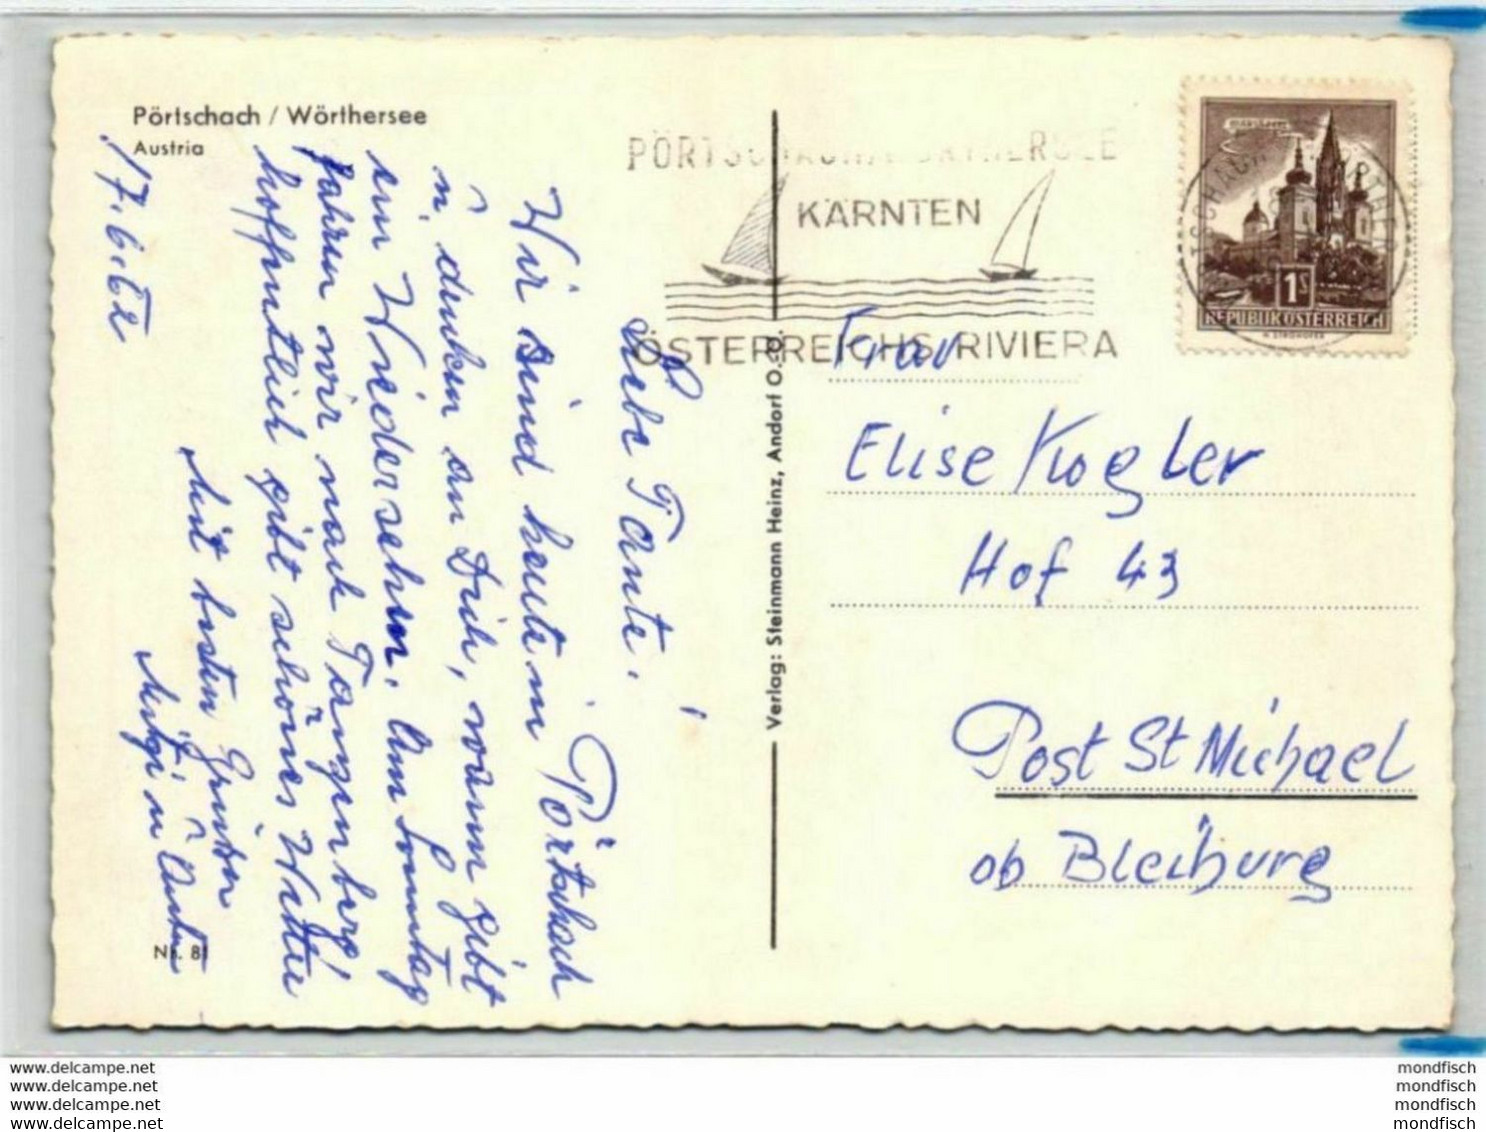 Pörtschach / Wörthersee
Austria
17.6.62
Liebe Tante!
Wir sind heute in Pörtschach
u. denken an Dich, wann gibt
ein Wiedersehen. Am Sonntag
fahren wir nach Tanzenberg
hoffentlich gibt schönes Wetter
Mit besten Grüßen
Nr. 81
Verlag: Steinmann Heinz, Andorf O.-Ö.
KÄRNTEN
ÖSTERREICHS RIVIERA
1S
REPUBLIK ÖSTERREICH
Frau
Elise Kogler
Hof 43
Post St Michael
ob Bleiburg
www.delcampe.net
www.delcampe.net
www.delcampe.net
www.delcampe.net
mondfisch
mondfisch
mondfisch
mondfisch